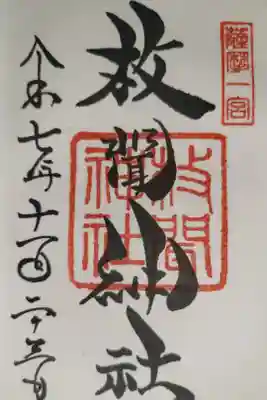 薩摩一宮
枚聞神社
枚聞神社
令和七年十一月二十三日